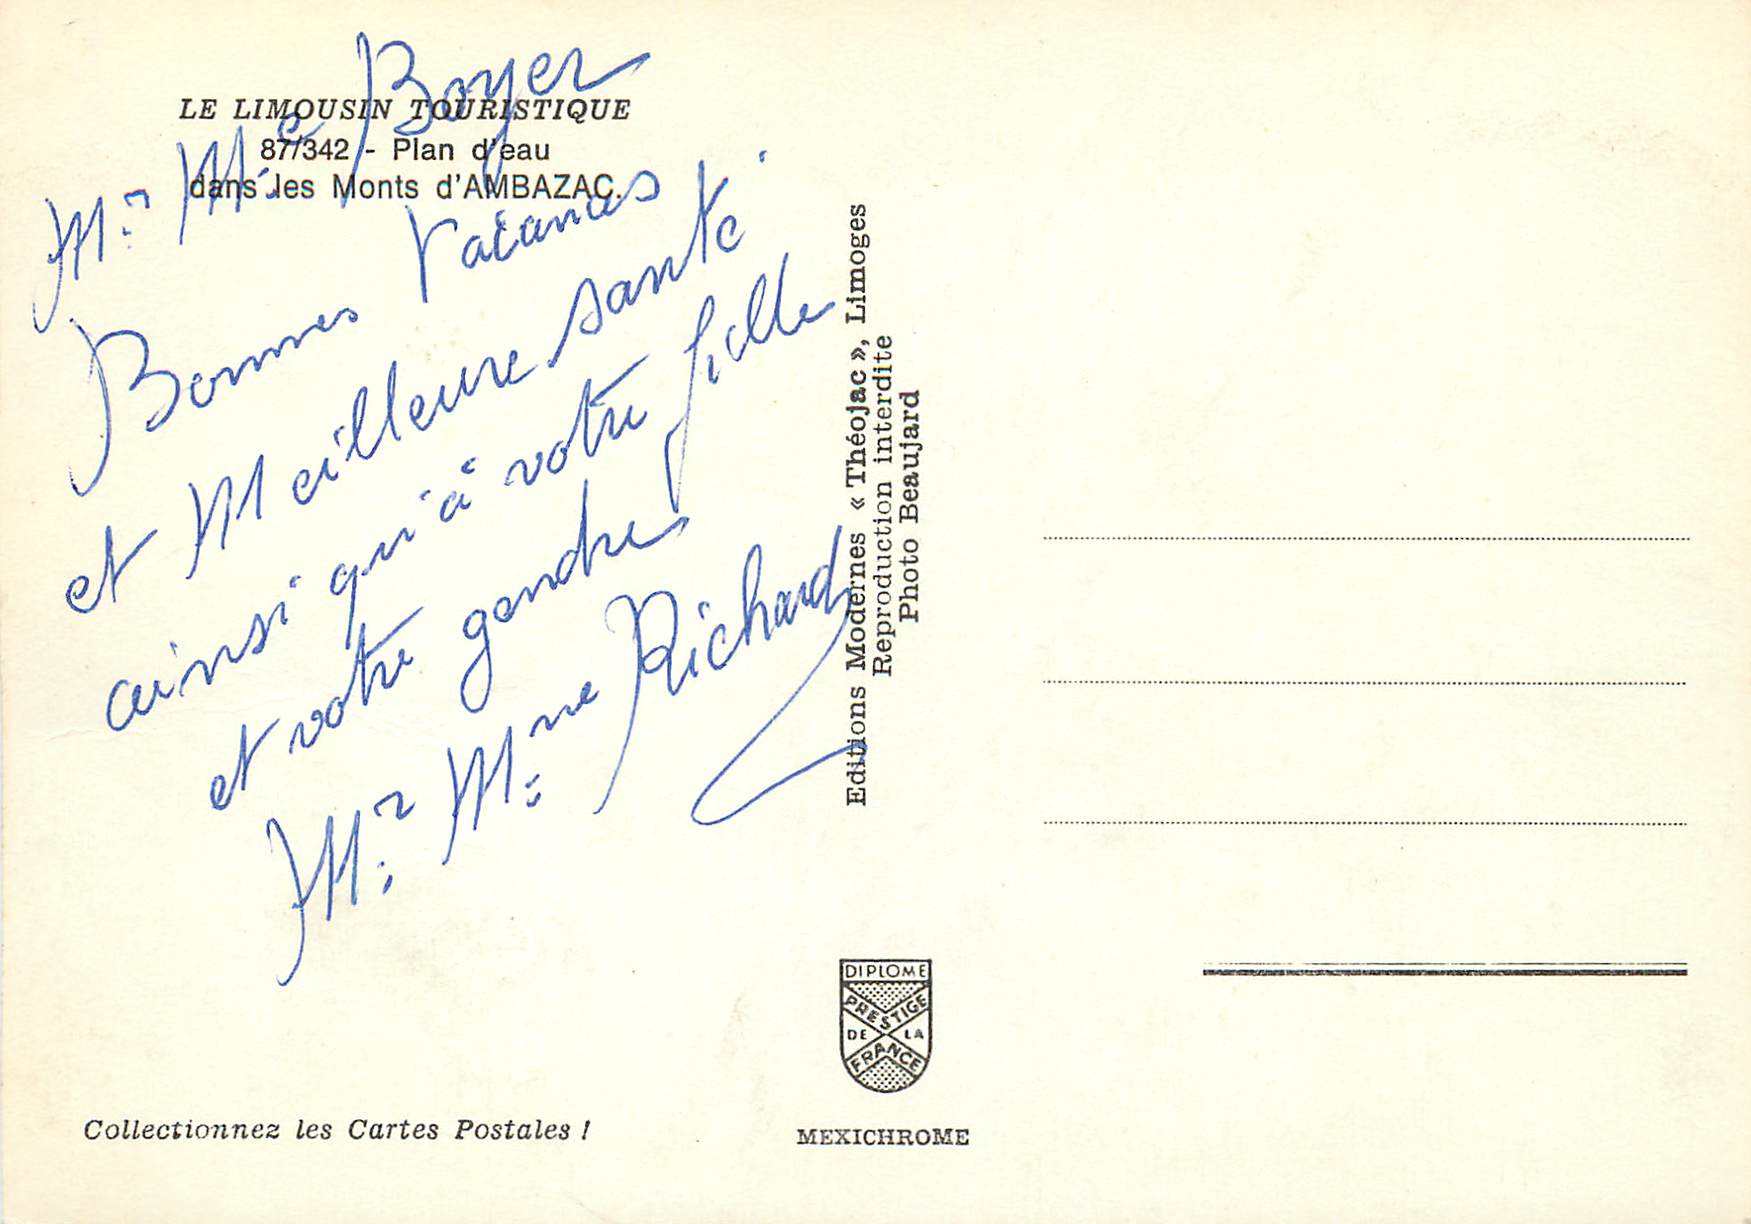 LE LIMOUSIN TOURISTIQUE
87/342 - Plan d'eau
dans les Monts d'AMBAZAC.
Mr. Me Boyer
Bonnes Vacances
et Meilleure santé
ainsi qu'à votre fille
et votre gendre
Mr. Mme Richard
Editions Modernes « Théojac », Limoges
Reproduction interdite
Photo Beaujard
DIPLOME
PRESTIGE
DE LA
FRANCE
Collectionnez les Cartes Postales !
MEXICHROME